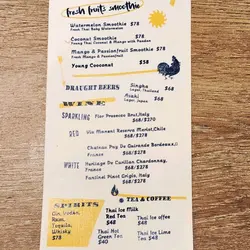 fresh fruits smoothie
Watermelon Smoothie $78
Fresh Thai Baby Watermelon
Coconut Smoothie $78
Young Thai Coconut & Mango with Passion
Mango & Passionfruit Smoothie $78
Fresh Mango & Passionfruit
Young Cocconut $58
DRAUGHT BEERS
Singha $68
Lager, Thailand
Asahi $68
Lager, Japan
WINE
SPARKLING Fior Prosecco Brut, Italy
$68/$278
RED Vic Manent Reserva Merlot, Chile
$68/$278
Chateau Puy De Garande Bordeaux,
$68/$278
WHITE Heritage De Carillan Chardonnay,
France $68/$278
Fantinel Pinot Grigio, Italy
$68/$278
SPIRITS
Gin, Vodka,
Rum,
Tequila,
Whisky
$78
TEA & COFFEE
Thai Ice Milk
Red Tea
$48
Thai Ice coffee
$48
Thai Hot
Green Tea
$40
Thai Ice Lime
Tea
$48